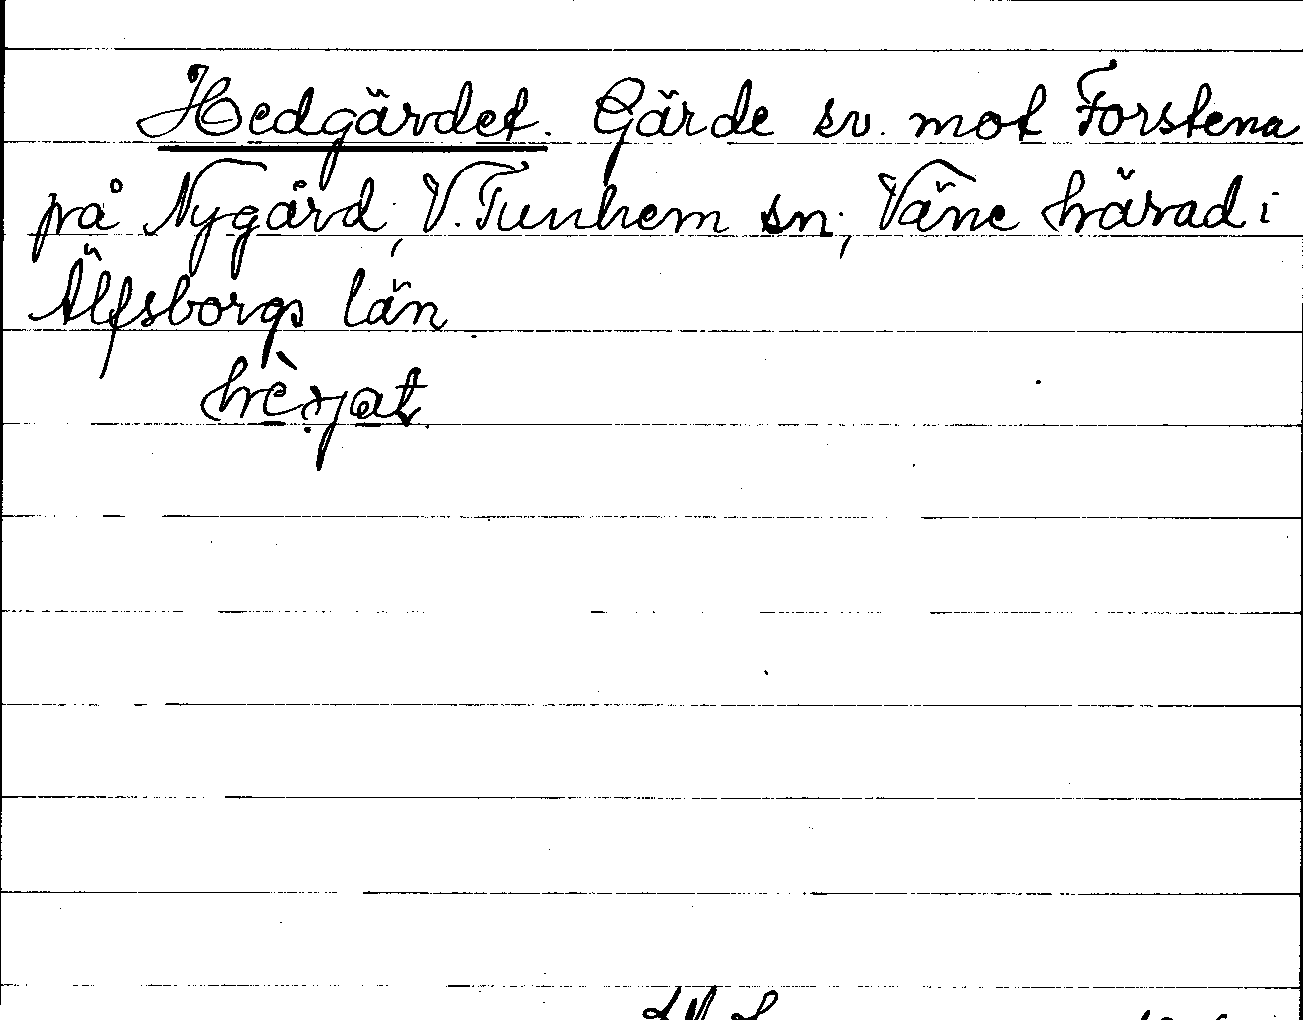 Hedgärdet. Gärde sv. mot Forstena
på Nygård, V. Tunhem sn; Väne härad i
Älfsborgs län